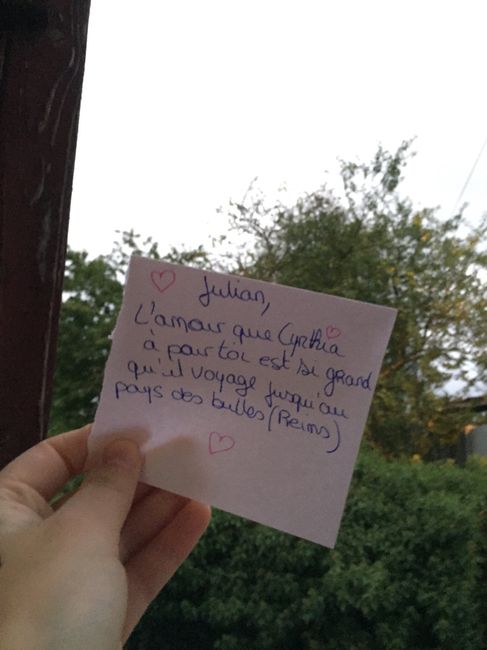 Julian,
L'amour que Cynthia
à pour toi est si grand
qu'il voyage jusqu'au
pays des bulles (Reims)